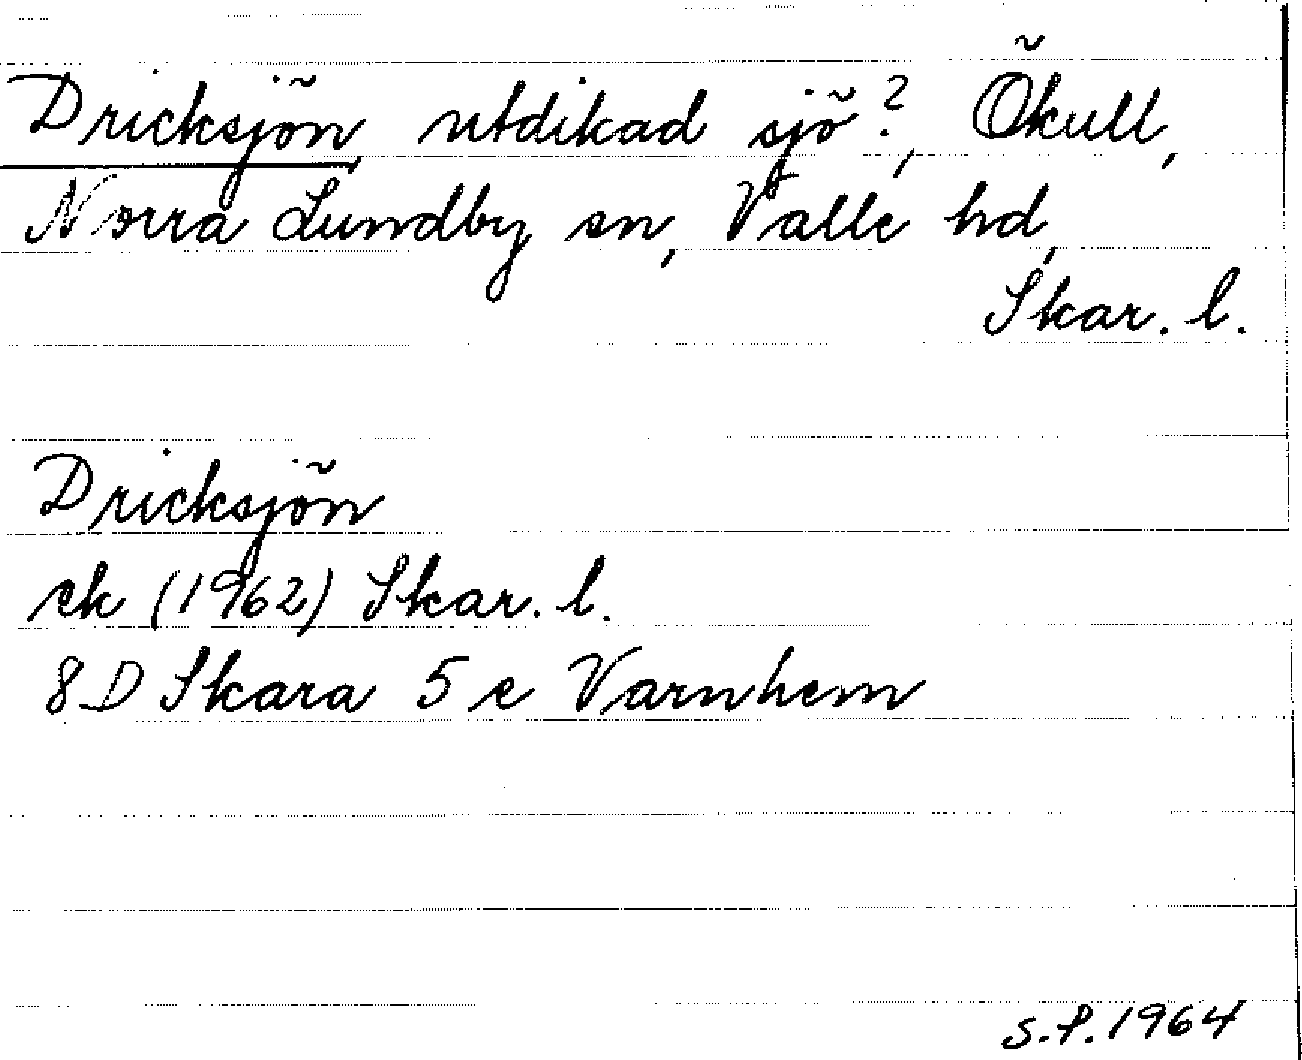 Dricksjön, utdikad sjö?, Ökull,
Norra Lundby sn, Valle hd,
Skar. l.
Dricksjön
ek (1962) Skar. l.
8 D Skara 5 e Varnhem
S.P. 1964